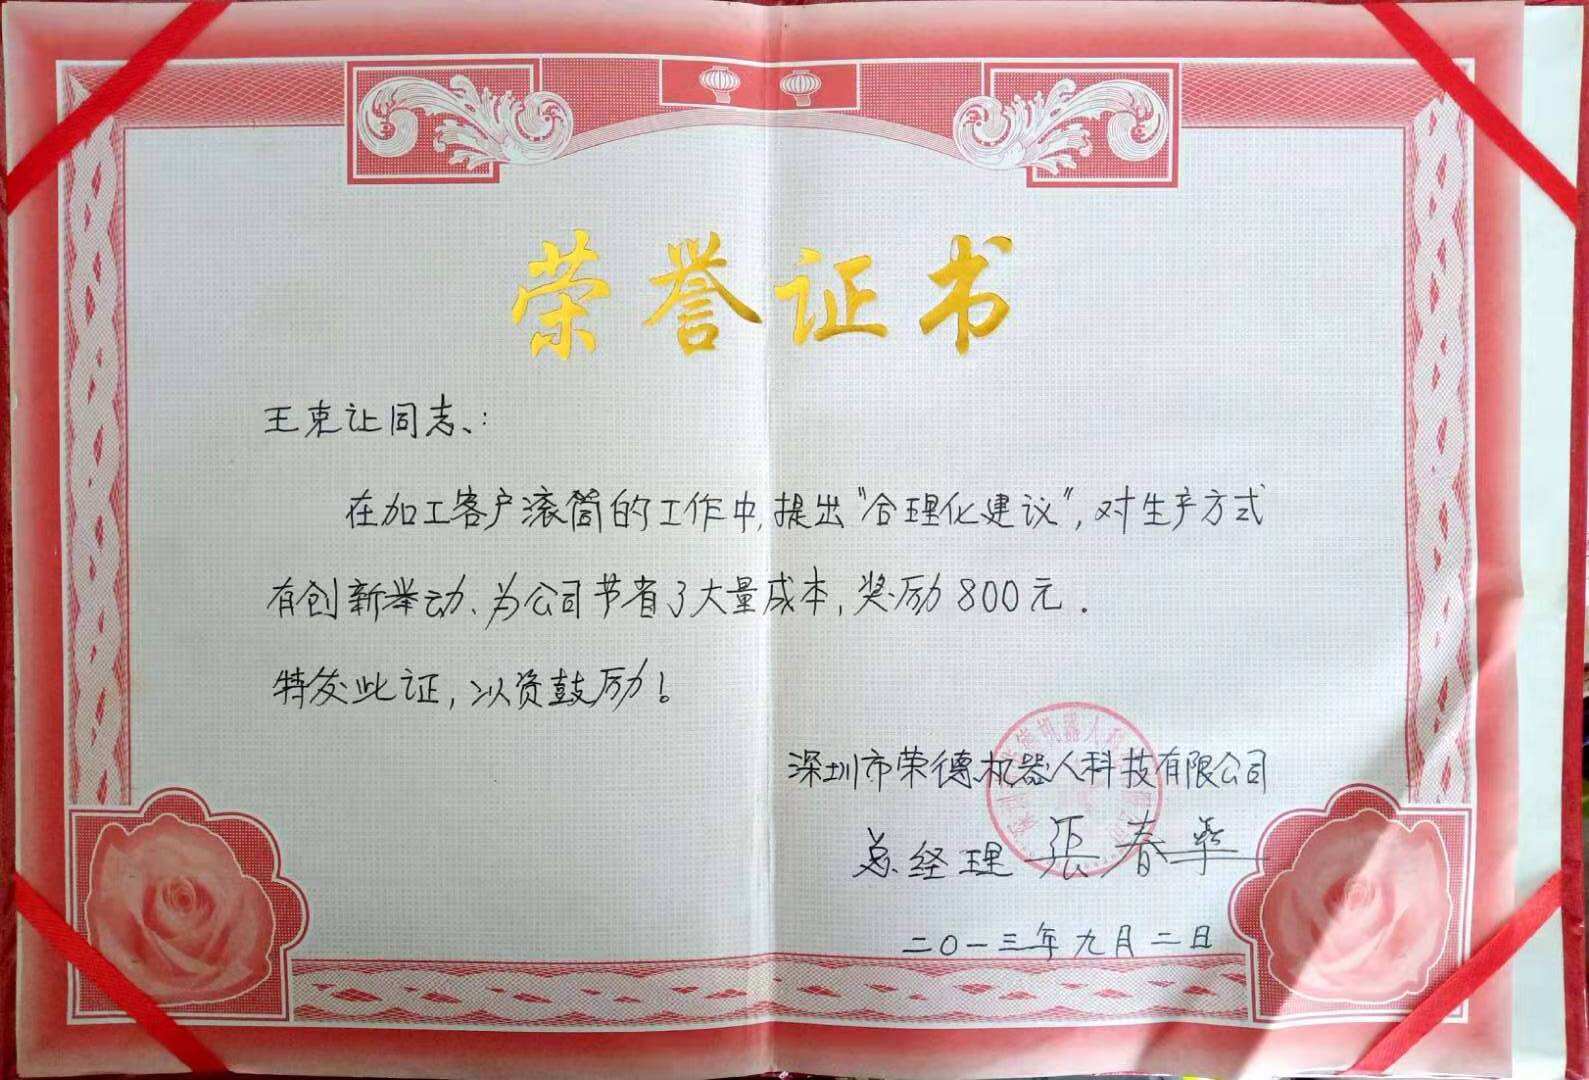 荣誉证书
王克让同志、：
在加工客户滚筒的工作中,提出"合理化建议",对生产方式
有创新举动、为公司节省了大量成本,奖励800元.
特发此证,以资鼓励!
深圳市荣德机器人科技有限公司
总经理 张春华
二〇一三年九月二日